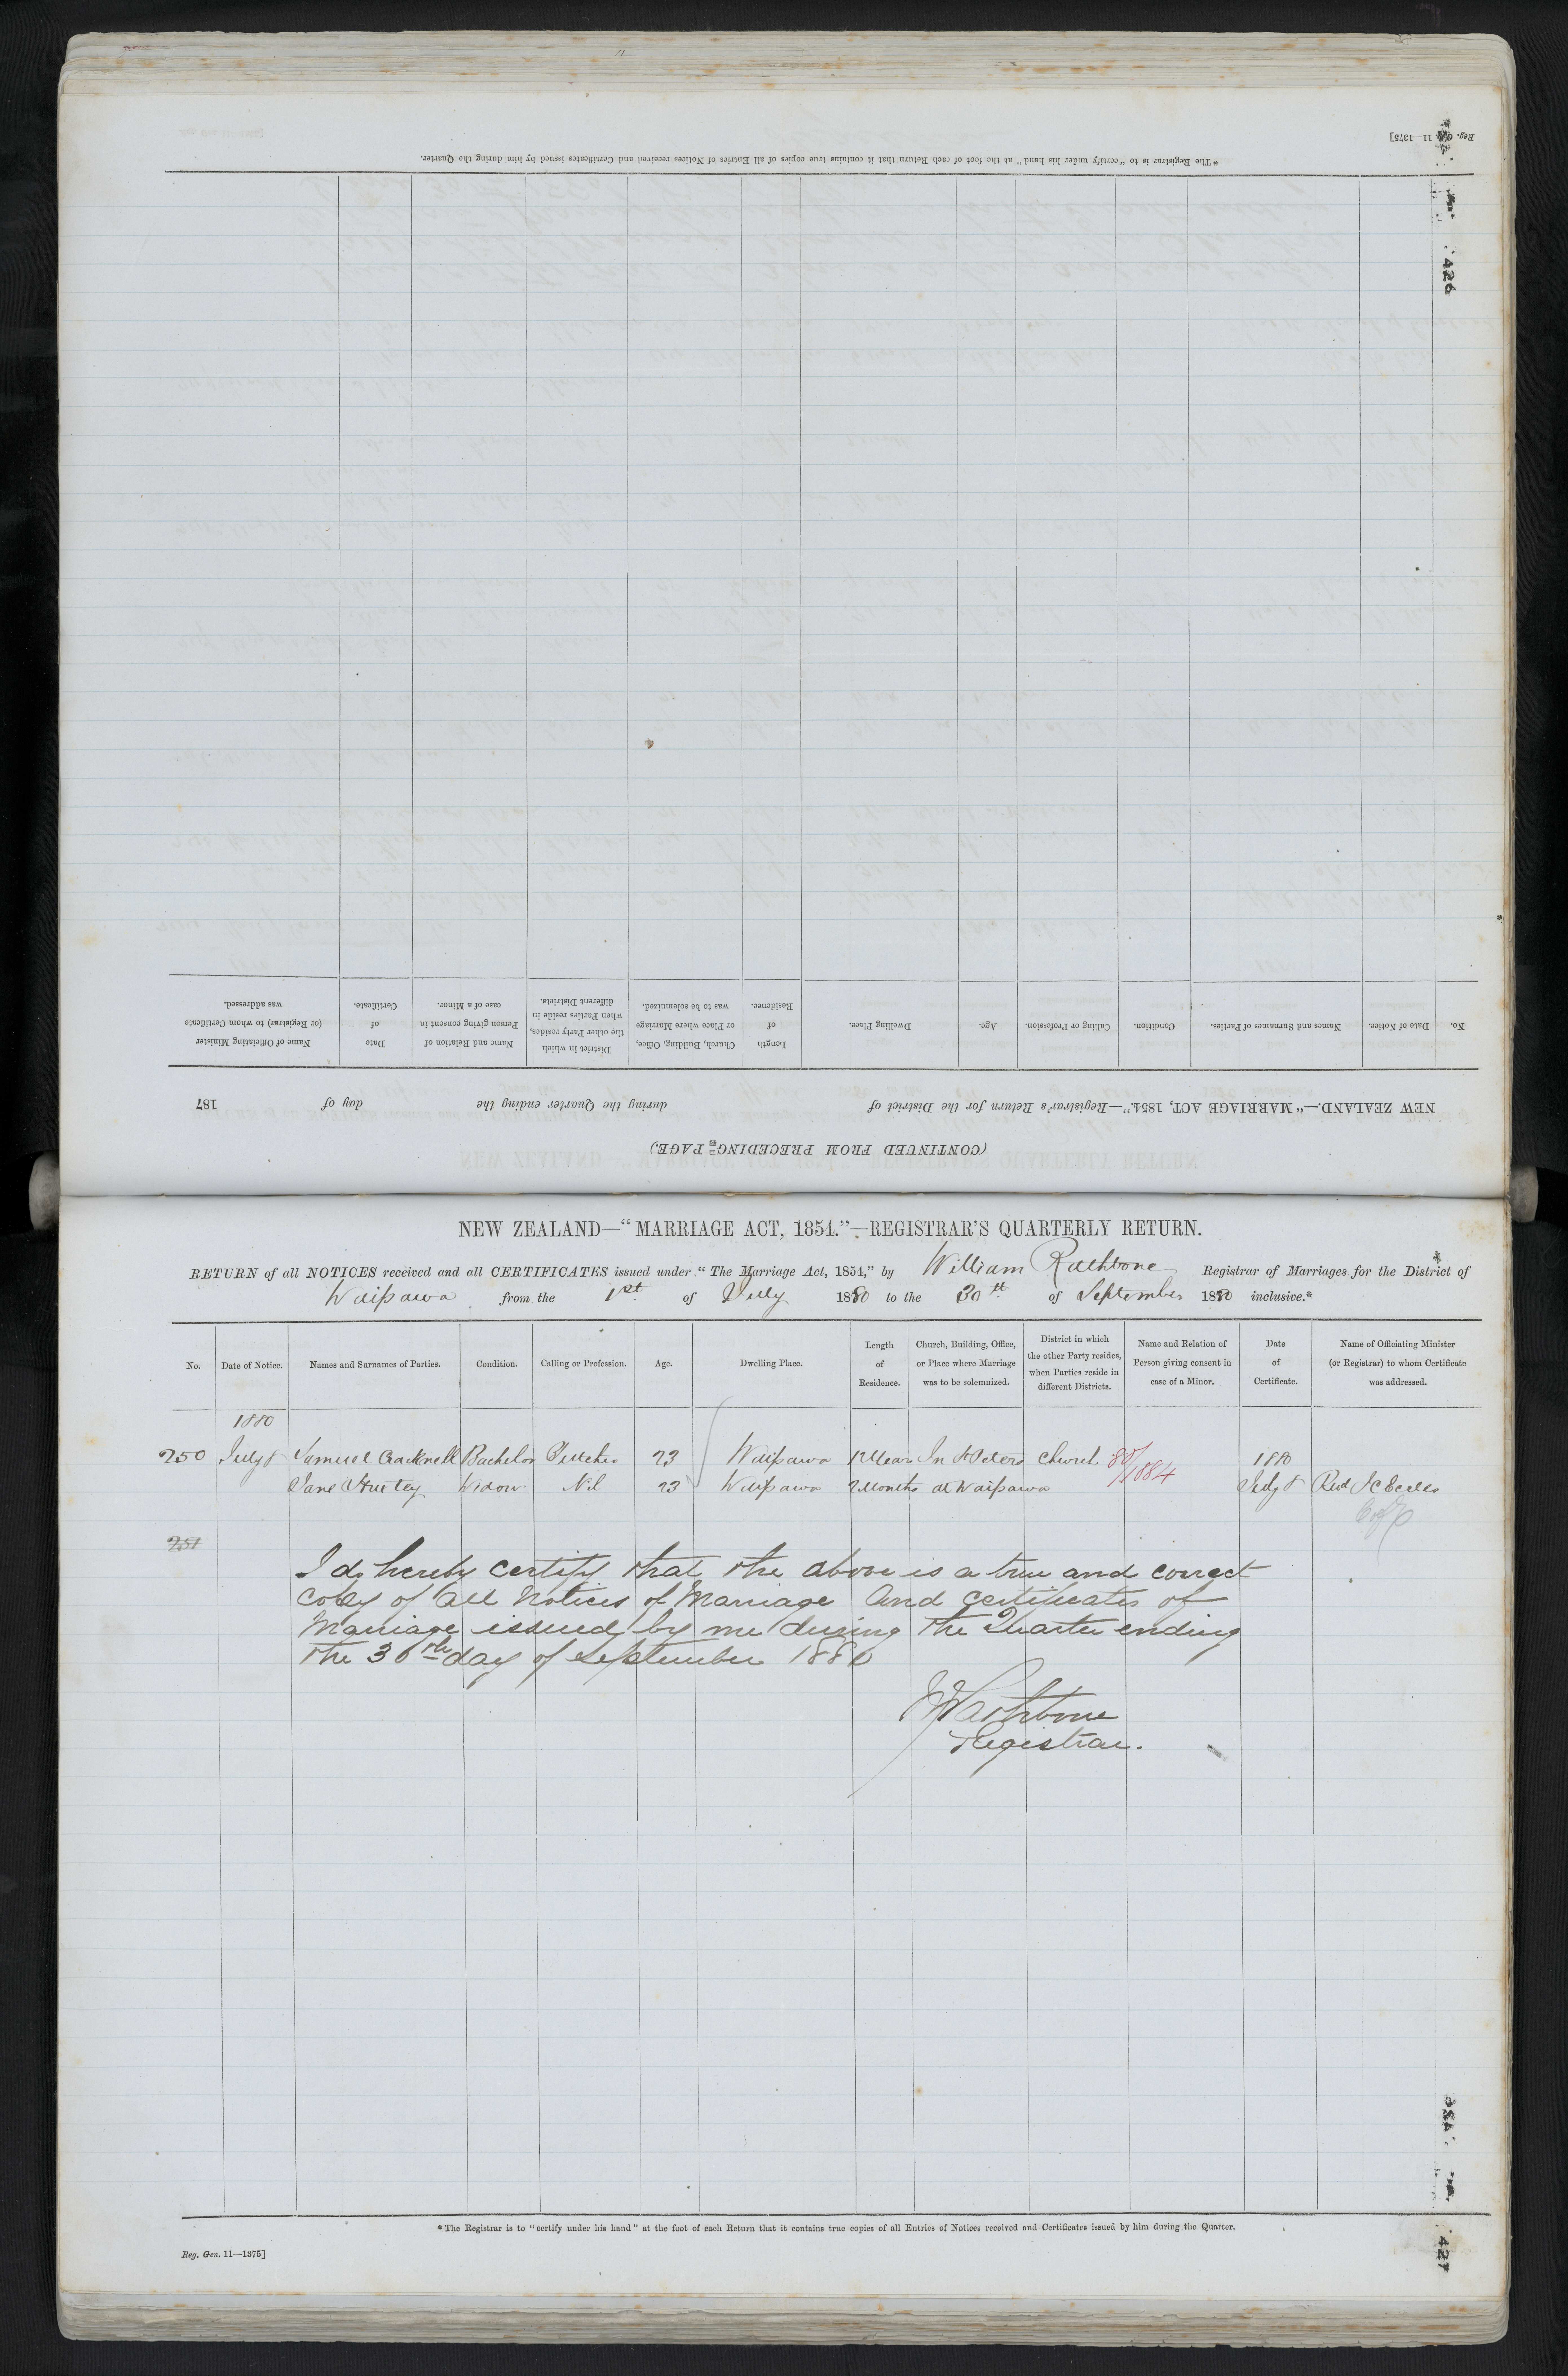 Reg. Gen. 11—1375]
*The Registrar is to "certify under his hand" at the foot of each Return that it contains true copies of all Entries of Notices received and Certificates issued by him during the Quarter.
426
(CONTINUED FROM PRECEDING PAGE.)
NEW ZEALAND.—"MARRIAGE ACT, 1854."—Registrar's Return for the District of during the Quarter ending the day of 187
No. Date of Notice. Names and Surnames of Parties. Condition. Calling or Profession. Age. Dwelling Place. Length of Residence. Church, Building, Office, or Place where Marriage was to be solemnized. District in which the other Party resides, when Parties reside in different Districts. Name and Relation of Person giving consent in case of a Minor. Date of Certificate. Name of Officiating Minister (or Registrar) to whom Certificate was addressed.
NEW ZEALAND—"MARRIAGE ACT, 1854."—REGISTRAR'S QUARTERLY RETURN.
RETURN of all NOTICES received and all CERTIFICATES issued under "The Marriage Act, 1854," by William Rathbone Registrar of Marriages for the District of
Waipawa from the 1st of July 1880 to the 30th of September 1880 inclusive.*
No. Date of Notice. Names and Surnames of Parties. Condition. Calling or Profession. Age. Dwelling Place. Length of Residence. Church, Building, Office, or Place where Marriage was to be solemnized. District in which the other Party resides, when Parties reside in different Districts. Name and Relation of Person giving consent in case of a Minor. Date of Certificate. Name of Officiating Minister (or Registrar) to whom Certificate was addressed.
1880
250 July 8 Samuel Cracknell Bachelor Butcher 23 Waipawa 12 Years In St Peters Church 80/1884 1880
Jane Widow Nil 23 Waipawa 2 Months at Waipawa July 8 Revd J C Eccles
C of E
251
I do hereby certify that the above is a true and correct
copy of all Notices of Marriage and certificates of
Marriage issued by me during the Quarter ending
the 30th day of September 1880
W Rathbone
Registrar.
*The Registrar is to "certify under his hand" at the foot of each Return that it contains true copies of all Entries of Notices received and Certificates issued by him during the Quarter.
Reg. Gen. 11—1375]
427